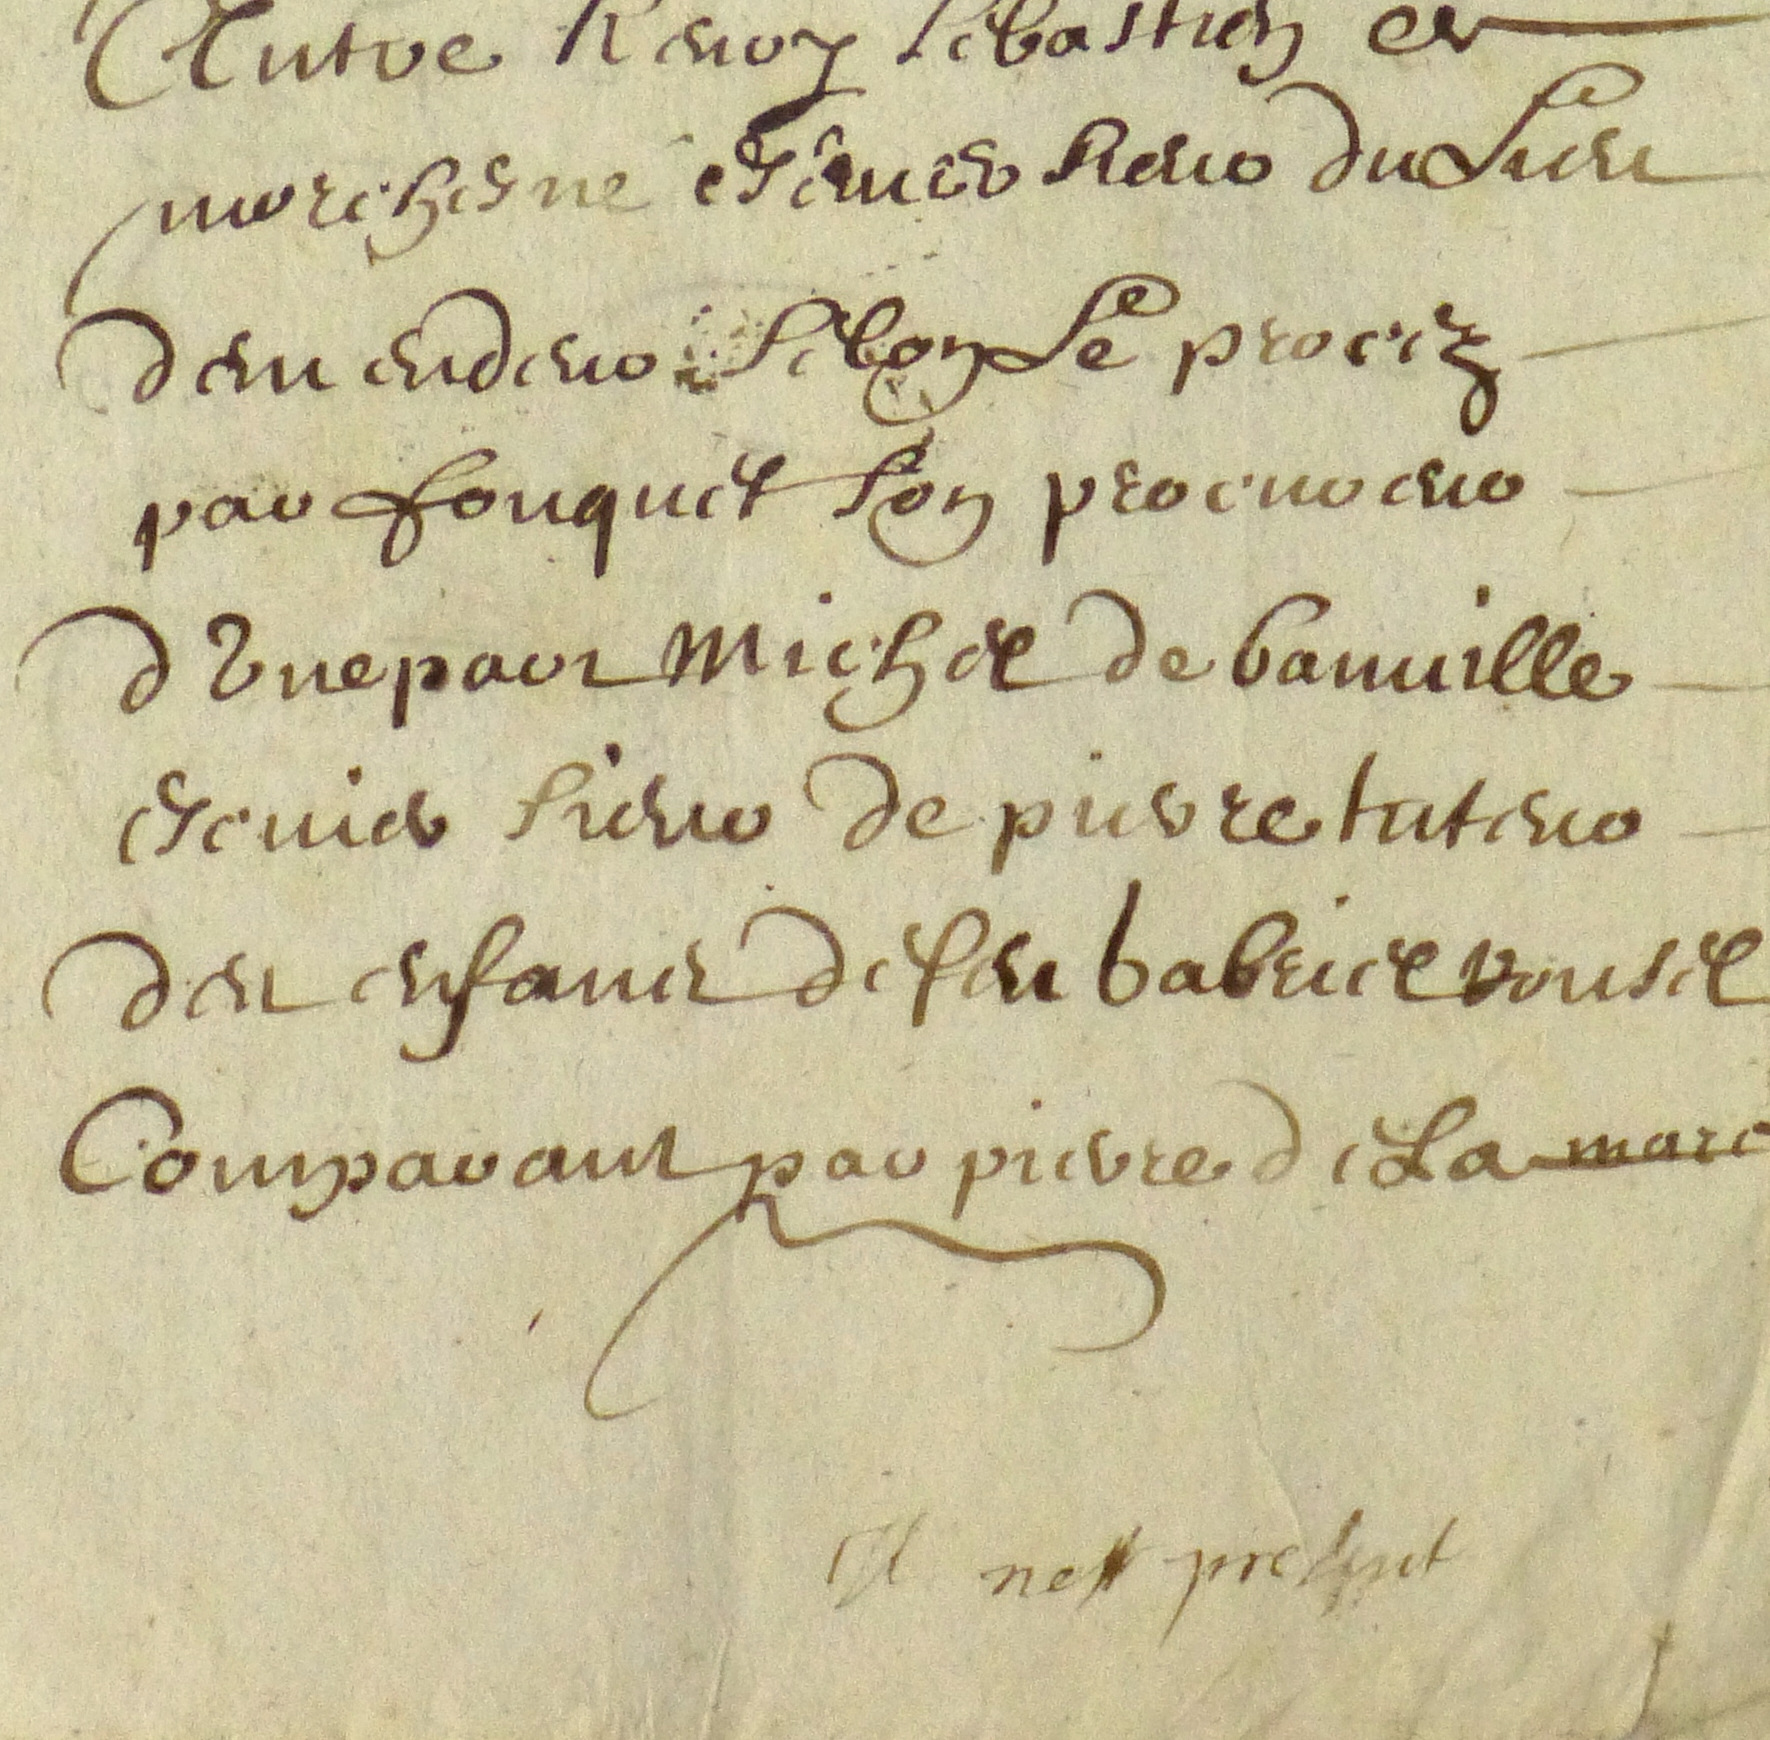 Entre Remy Sebastien et
marchesne escuier sieur du lieu
demandeur selon le procez
par fouquet son procureur
d Vne part Michel de banuille
escuier sieur de pierre tuteur
des enfans de feu gabriel roussel
Comparant par pierre de La mare
Il nest present